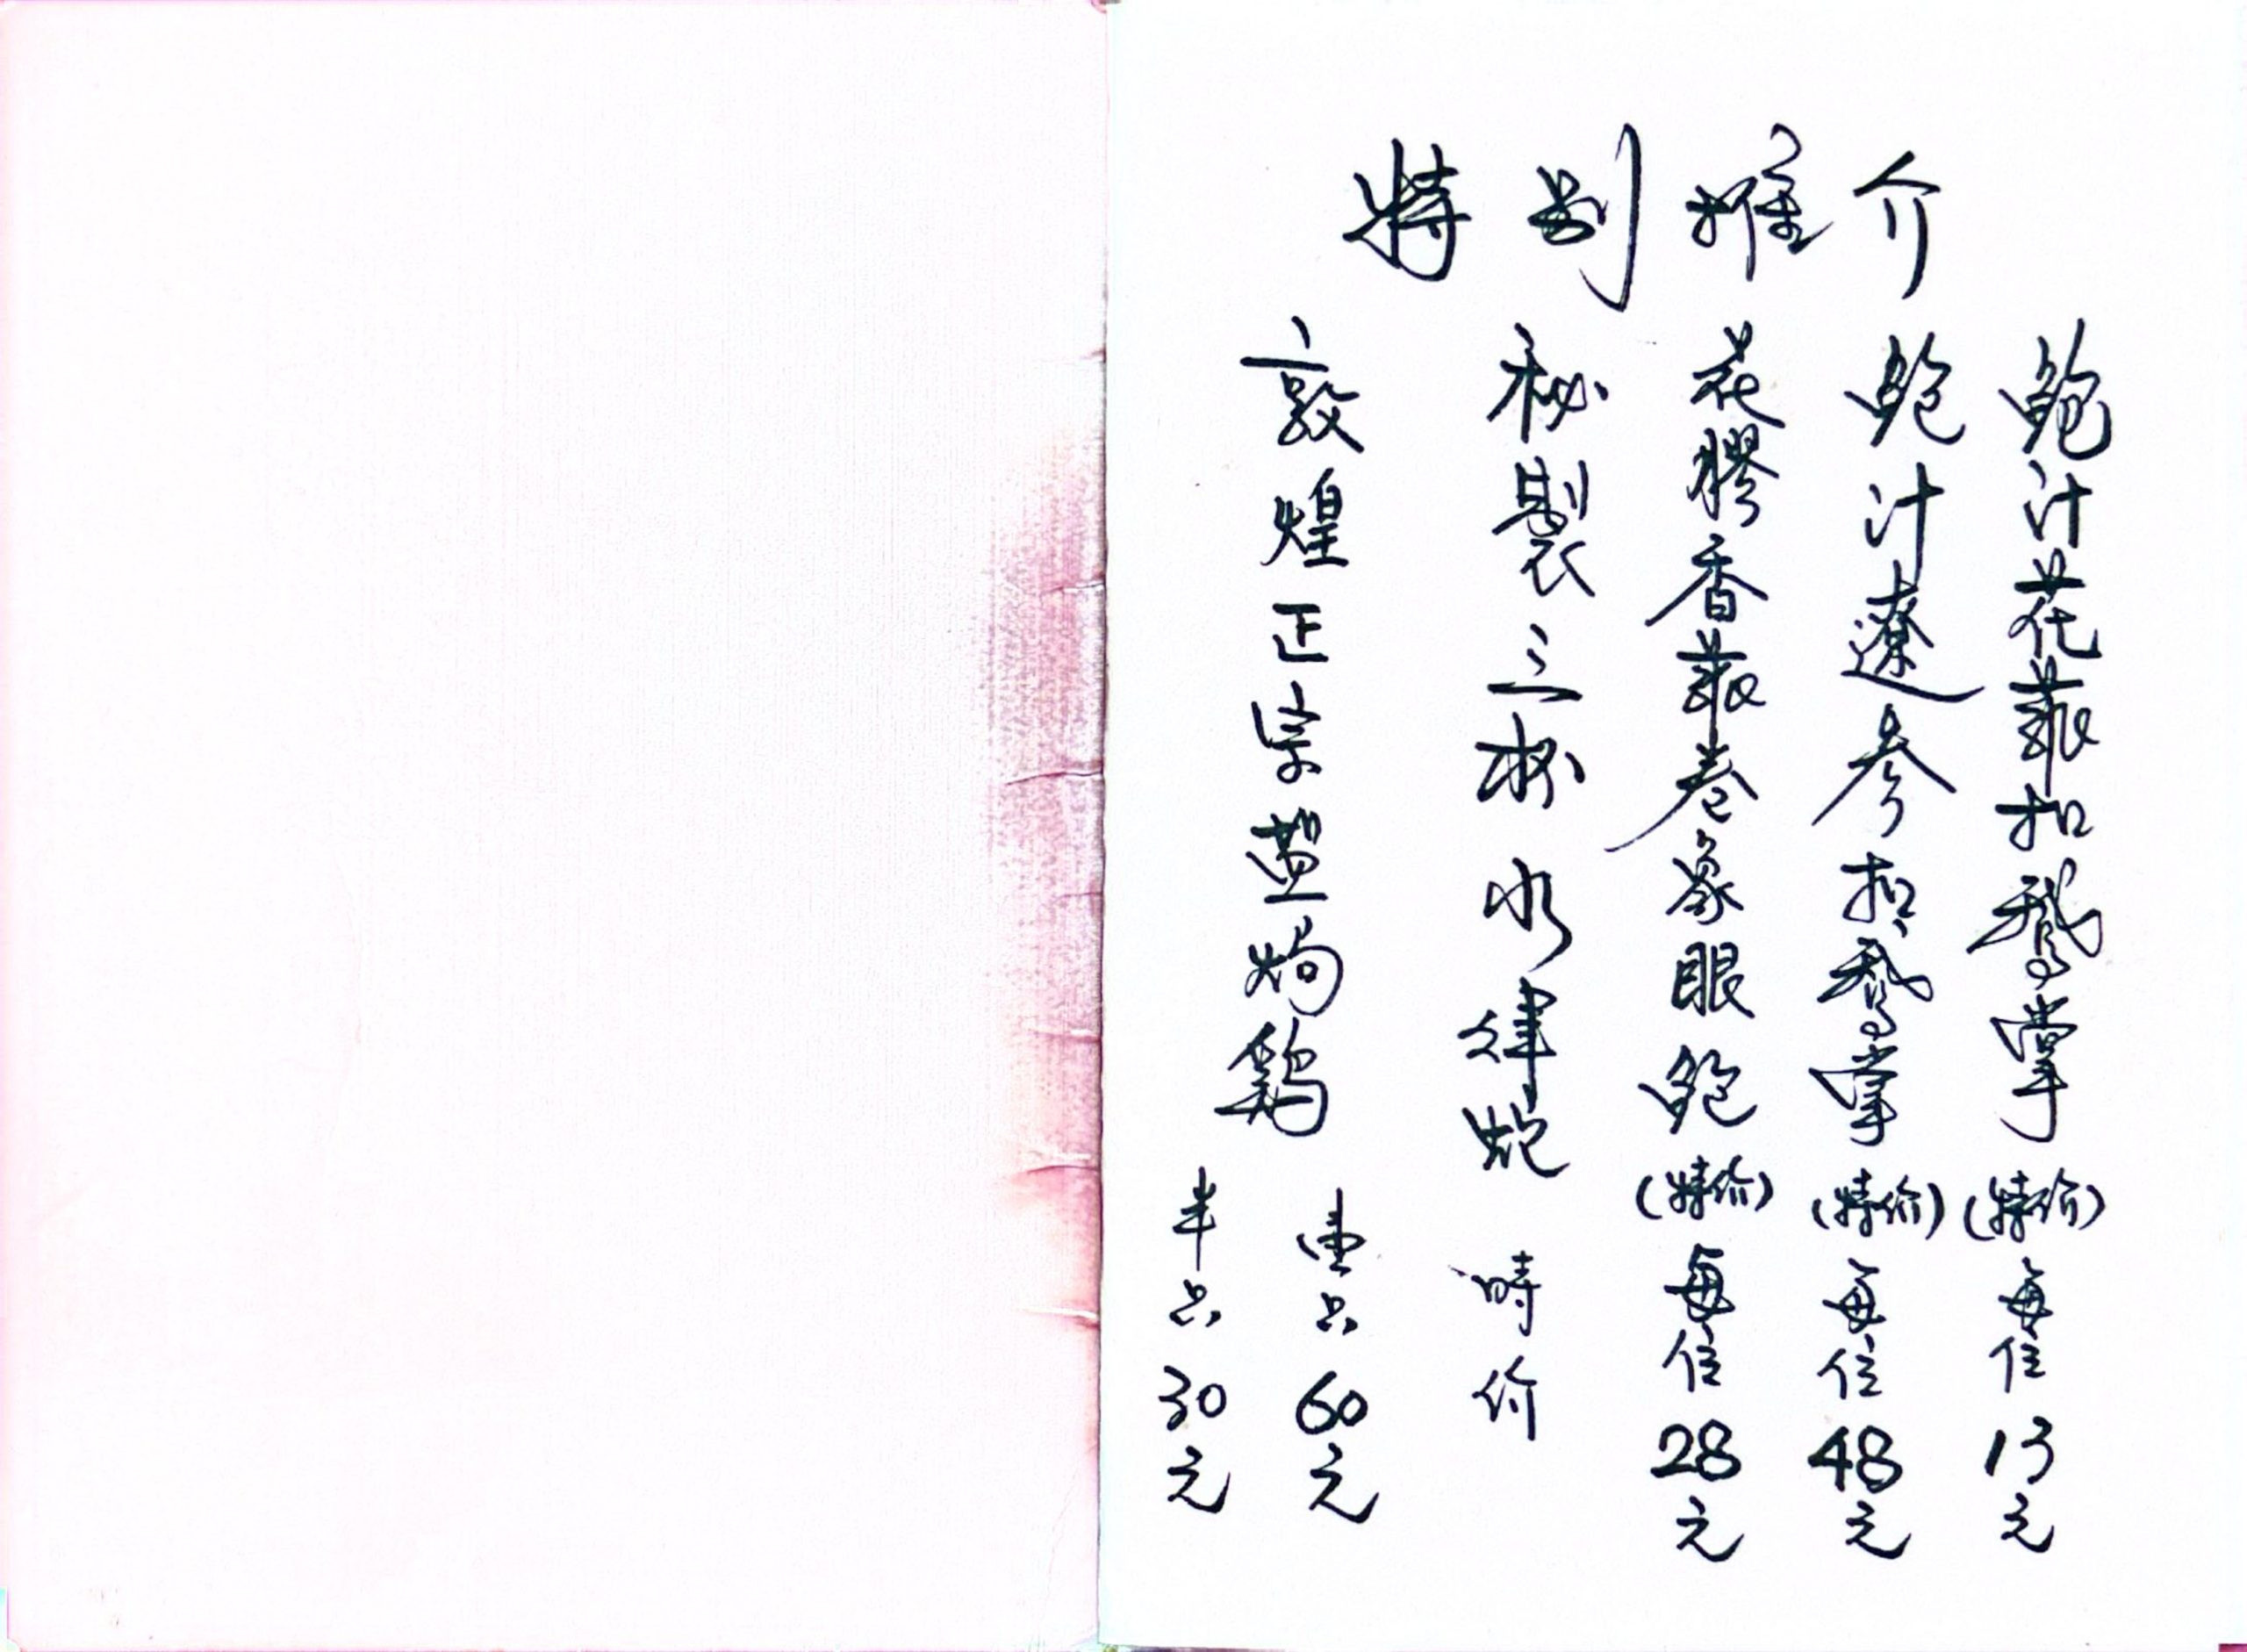 特别推介
鲍汁花菇扣鵝掌(特价)每位13元
鲍汁遼参扣鵝掌(特价)每位48元
花膠香菇卷象眼鲍(特价)每位28元
秘製三杯水律蛇 時价
敦煌正宗盬焗鷄 壹只60元
半只30元